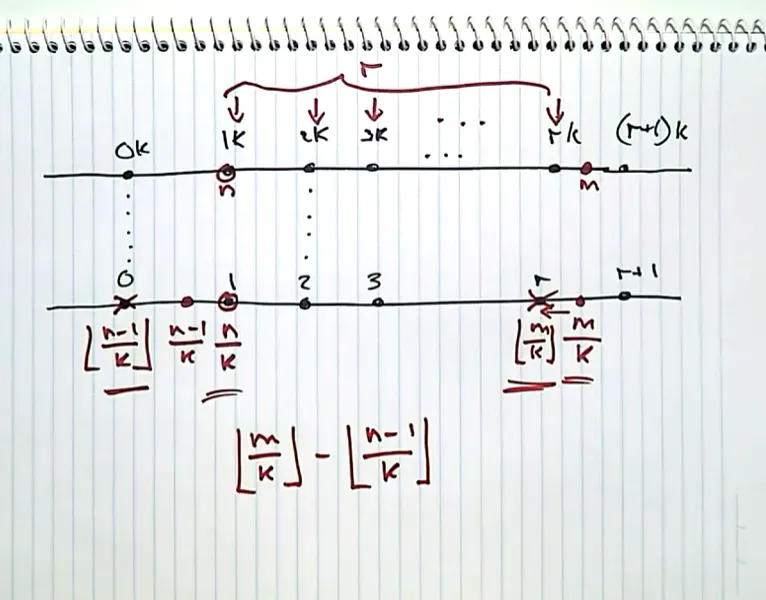 r
1K 2K 3K ... rK (r+1)K
0K ...
n m
0 1 2 3 r r+1
⌊n-1/K⌋ n-1/K n/K ⌊m/K⌋ m/K
⌊m/K⌋ - ⌊n-1/K⌋